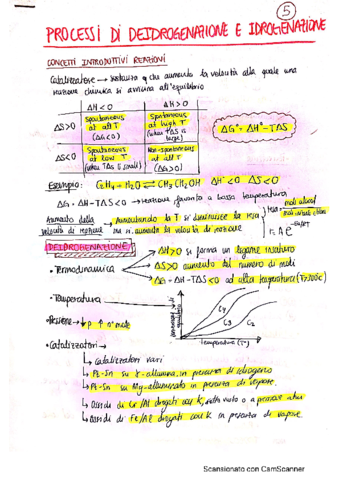 5
PROCESSI DI DEIDROGENAZIONE E IDROGENAZIONE
CONCETTI INTRODUTTIVI REAZIONI
Catalizzatore → sostanza che aumenta la velocità alla quale una
reazione chimica si avvicina all'equilibrio
ΔH<0 ΔH>0
ΔS>0 Spontaneous at all T (ΔG<0) Spontaneous at high T (when TΔS is large)
ΔS<0 Spontaneous at low T (when TΔS is small) Non-spontaneous at all T (ΔG>0)
ΔG° = ΔH° - TΔS
Esempio: C₂H₄ + H₂O ⇌ CH₃CH₂OH ΔH°<0 ΔS<0
ΔG = ΔH - TΔS <0 → reazione favorita a bassa temperatura
Aumento della velocità di reazione → Aumentando la T si diminuisce la resa
ma si aumenta la velocità di reazione
resa =
DEIDROGENAZIONE
• Termodinamica
→ ΔH>0 si forma un legame insaturo
→ ΔS>0 aumento del numero di moli
→ ΔG = ΔH - TΔS <0 ad alta temperatura
• Temperatura
• Pressione → ↓p ↑ n° mole
equilibrio
C4
C3
C2
temperatura (T°)
• Catalizzatori →
↳ Catalizzatori vari
↳ Pt-Sn su γ-allumina, in presenza di idrogeno
↳ Pt-Sn su Mg-alluminato in presenza di vapore
↳ Ossidi di Cr/Al drogati con K, sotto vuoto o a pressione atm
↳ Ossidi di Fe/Al drogati con K in presenza di vapore.
Scansionato con CamScanner